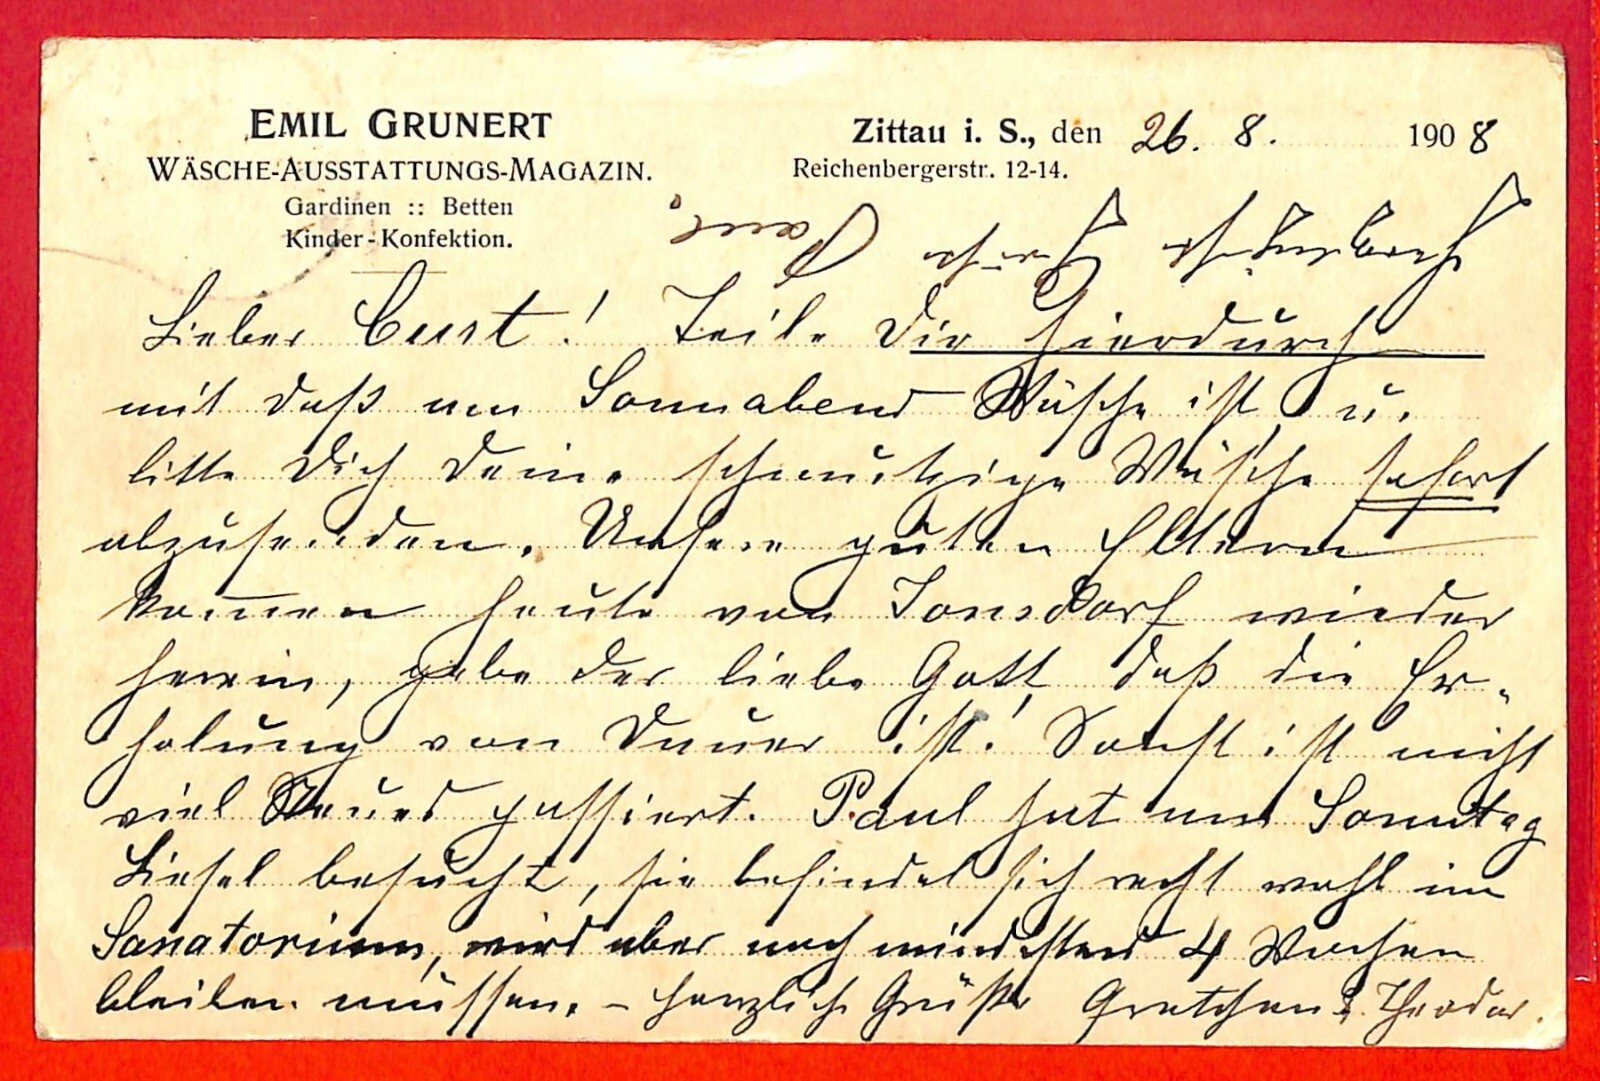 EMIL GRUNERT
WÄSCHE-AUSSTATTUNGS-MAGAZIN.
Gardinen :: Betten
Kinder-Konfektion.
Zittau i. S., den 26. 8. 1908
Reichenbergerstr. 12-14.
Lieber Curt! Teile Dir hierdurch
mit daß am Sonnabend Wäsche ist, u.
bitte Dich Deine schmutzige Wäsche sofort
abzusenden. Unsere guten Eltern
kommen heute von Jonsdorf wieder
herein, gebe der liebe Gott, daß die Er-
holung von Dauer ist! Sonst ist nicht
viel Neues passiert. Paul hat am Sonntag
Liesel besucht, sie befindet sich recht wohl im
Sanatorium, wird aber noch mindestens 4 Wochen
bleiben müssen. – Herzliche Grüße Gretchen & Theodor.